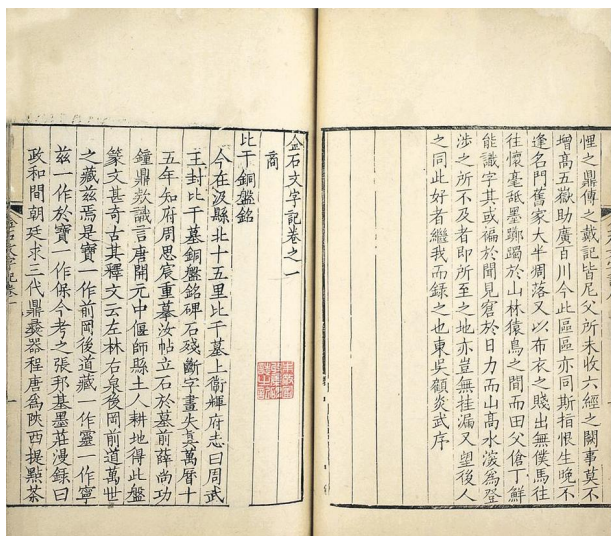 悝之鼎傳之戴記皆尼父所未收六經之闕事莫不
增高五嶽助廣百川今此區區亦同斯指恨生晚不
逢名門舊家大半凋落又以布衣之賤出無僕馬往
往懷毫舐墨躑躅於山林猿鳥之間而田父傖丁鮮
能識字其或褊於聞見窘於日力而山高水深為登
涉之所不及者即所至之地亦豈無挂漏又望後人
之同此好者繼我而錄之也東吳顧炎武序
金石文字記卷之一
商
比干銅盤銘
今在汲縣北十五里比干墓上衞輝府志曰周武
王封比干墓銅盤銘碑石殘斷字畫失真萬曆十
五年知府周思宸重摹汝帖立石於墓前薛尚功
鐘鼎欵識言唐開元中偃師縣土人耕地得此盤
篆文甚奇古其釋文云左林右泉後岡前道萬世
之藏茲焉是寶一作前岡後道藏一作靈一作寧
茲一作於寶一作保今考之張邦基墨莊漫錄曰
政和間朝廷求三代鼎彝器程唐為陝西提點茶